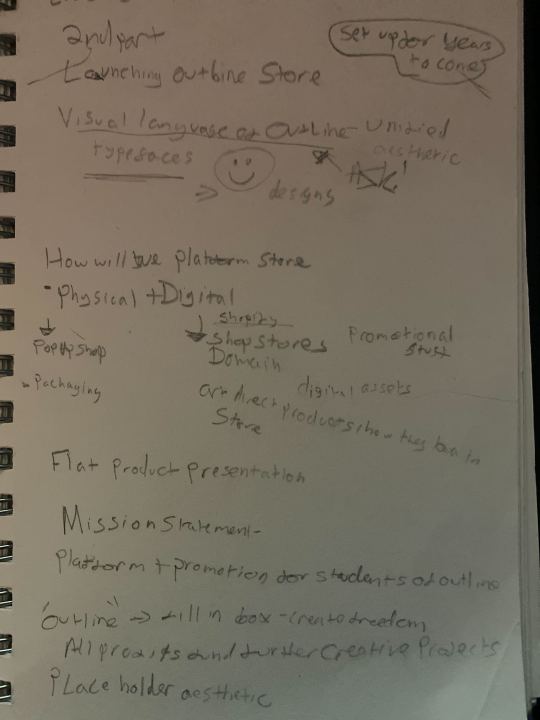 2nd part
Set up for years
to come
Launching Outline Store
Visual language of Outline - Unified
aesthetic
typefaces
designs
ASK!
How will we platform store
- Physical + Digital
Shopify
Pop up shop
Shop stores
Domain
Promotional
Stuff
- Packaging
digital assets
art direct products how they look in
Store
Flat product presentation
Mission Statement -
Platform + promotion for students of outline
"Outline" → fill in box - create freedom
All profits fund further Creative Projects
Place holder aesthetic